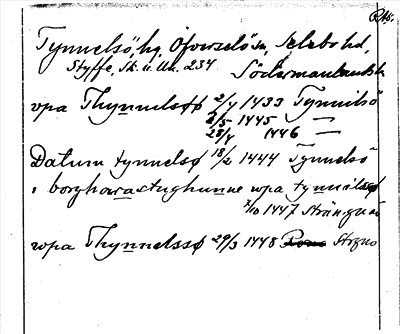 RAp.
Tynnelsö, hg, Öfverselö sn, Selebo hd,
Styffe, Sk. u. Un. 234 Södermanlands l.
vpa Thynnelsø 2/4 1433 Tynnilsö
3/5 1445 —
28/4 1446 —
Datum tynnelsø 18/2 1444 Tynnelsö
i borghwarestughunne wpa tynnilsø
7/10 1447 Strängnäs
wpa Thynnelssø 29/3 1448 Strgnæs